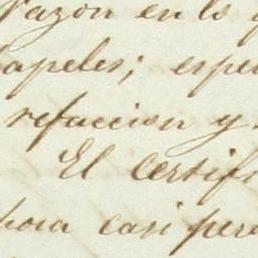 razon en lo
apeles; espe
refaccion y
El certifi
hora casi per